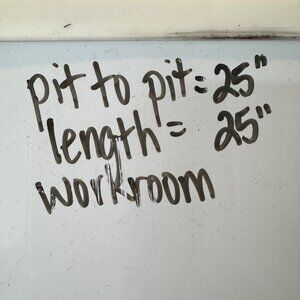 pit to pit = 25"
length = 25"
workroom